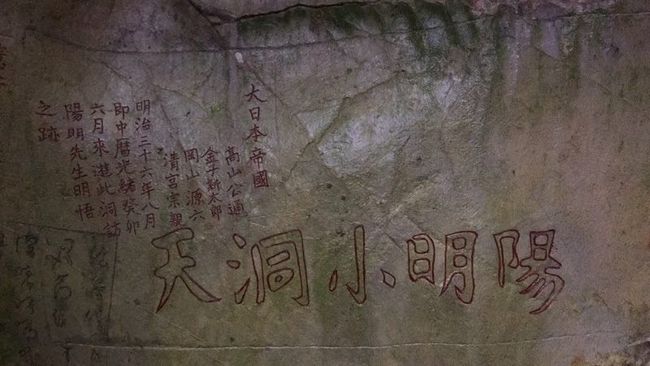 陽明小洞天
大日本帝國
高山公通
金子新太郎
岡山源六
清宮宗親
明治三十六年八月
即中曆光緒癸卯
六月來遊此洞訪
陽明先生明悟
之跡